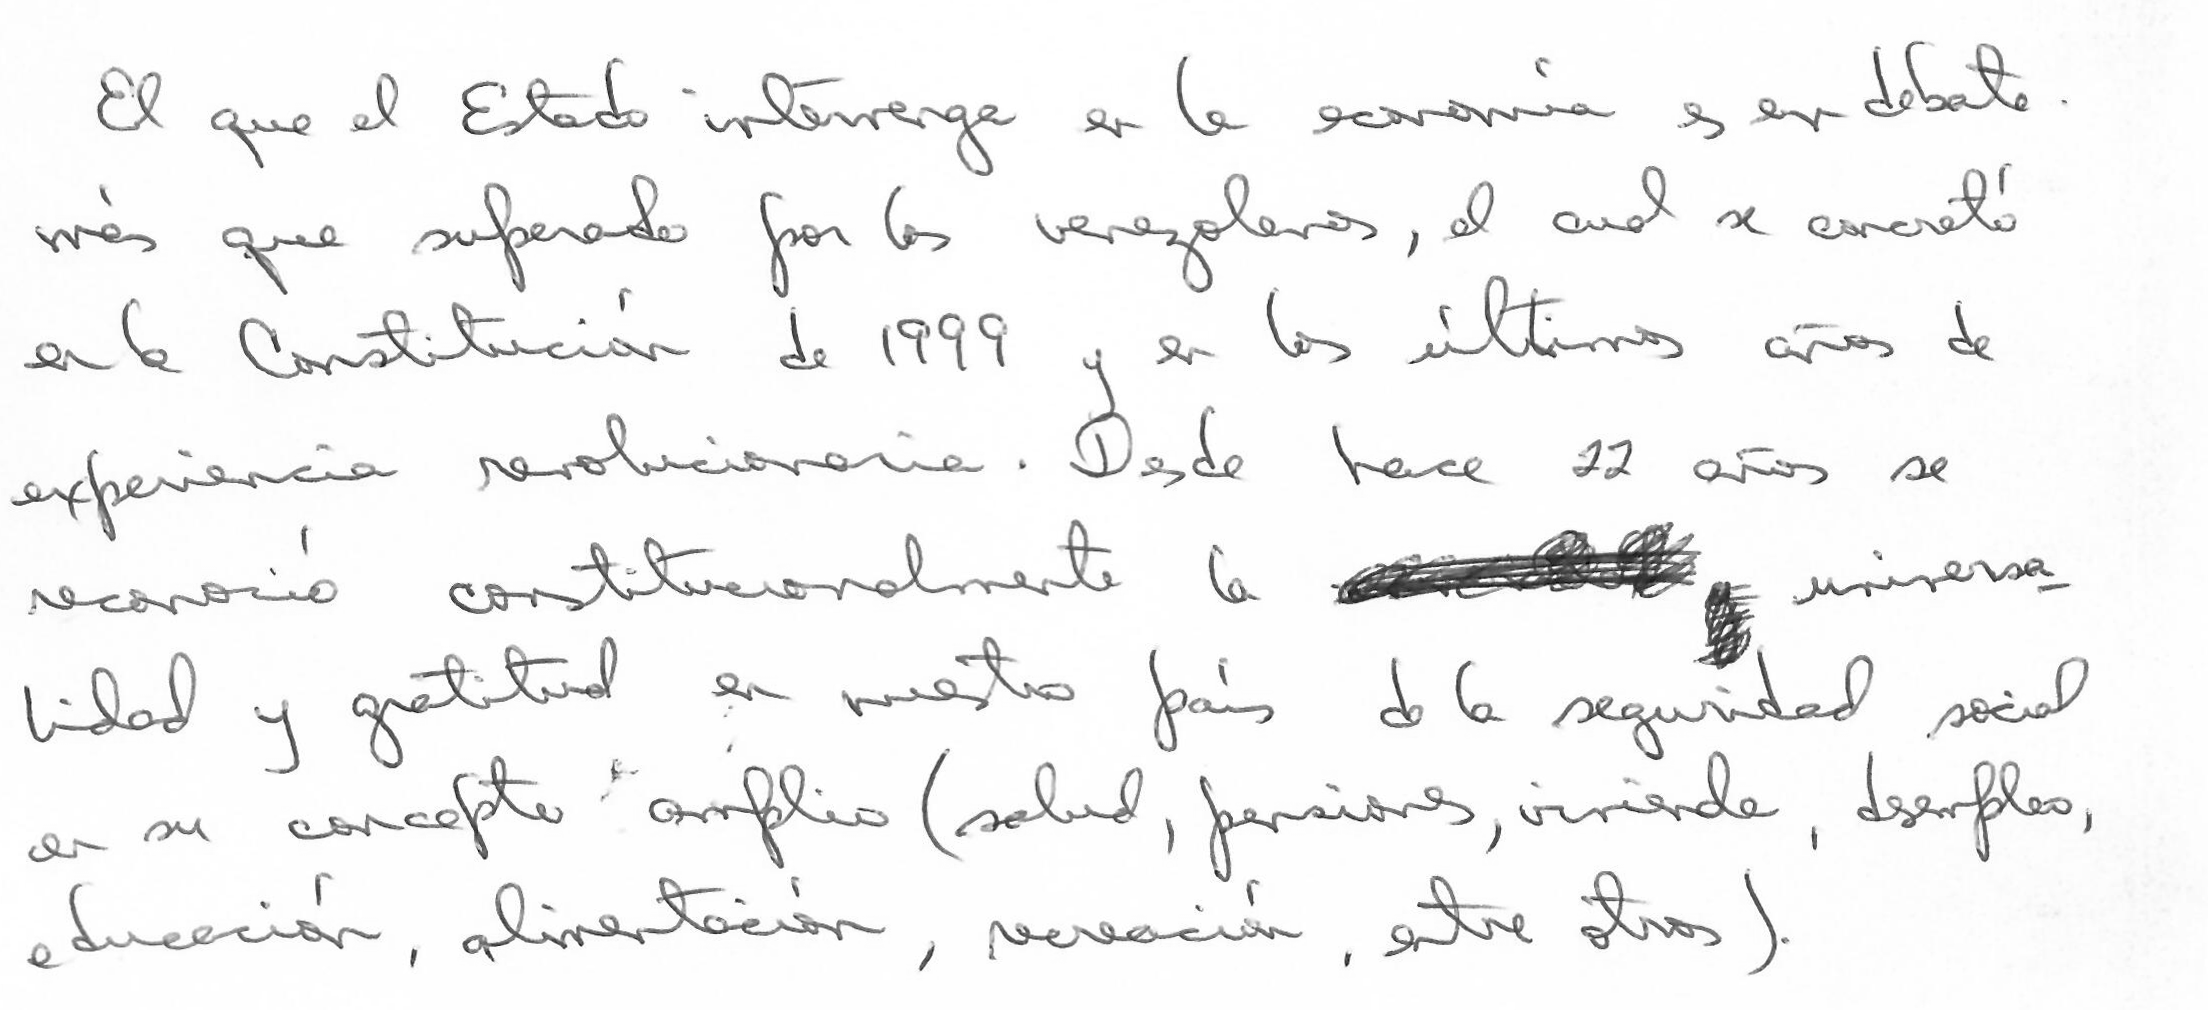 El que el Estado intervenga en la economía es un debate
más que superado por los venezolanos, el cual se concretó
en la Constitución de 1999 y en los últimos años de
experiencia revolucionaria. Desde hace 22 años se
reconoció constitucionalmente la universa
lidad y gratitud en nuestro país de la seguridad social
en su concepto amplio (salud, pensiones, vivienda, desempleo,
educación, alimentación, recreación, entre otros).